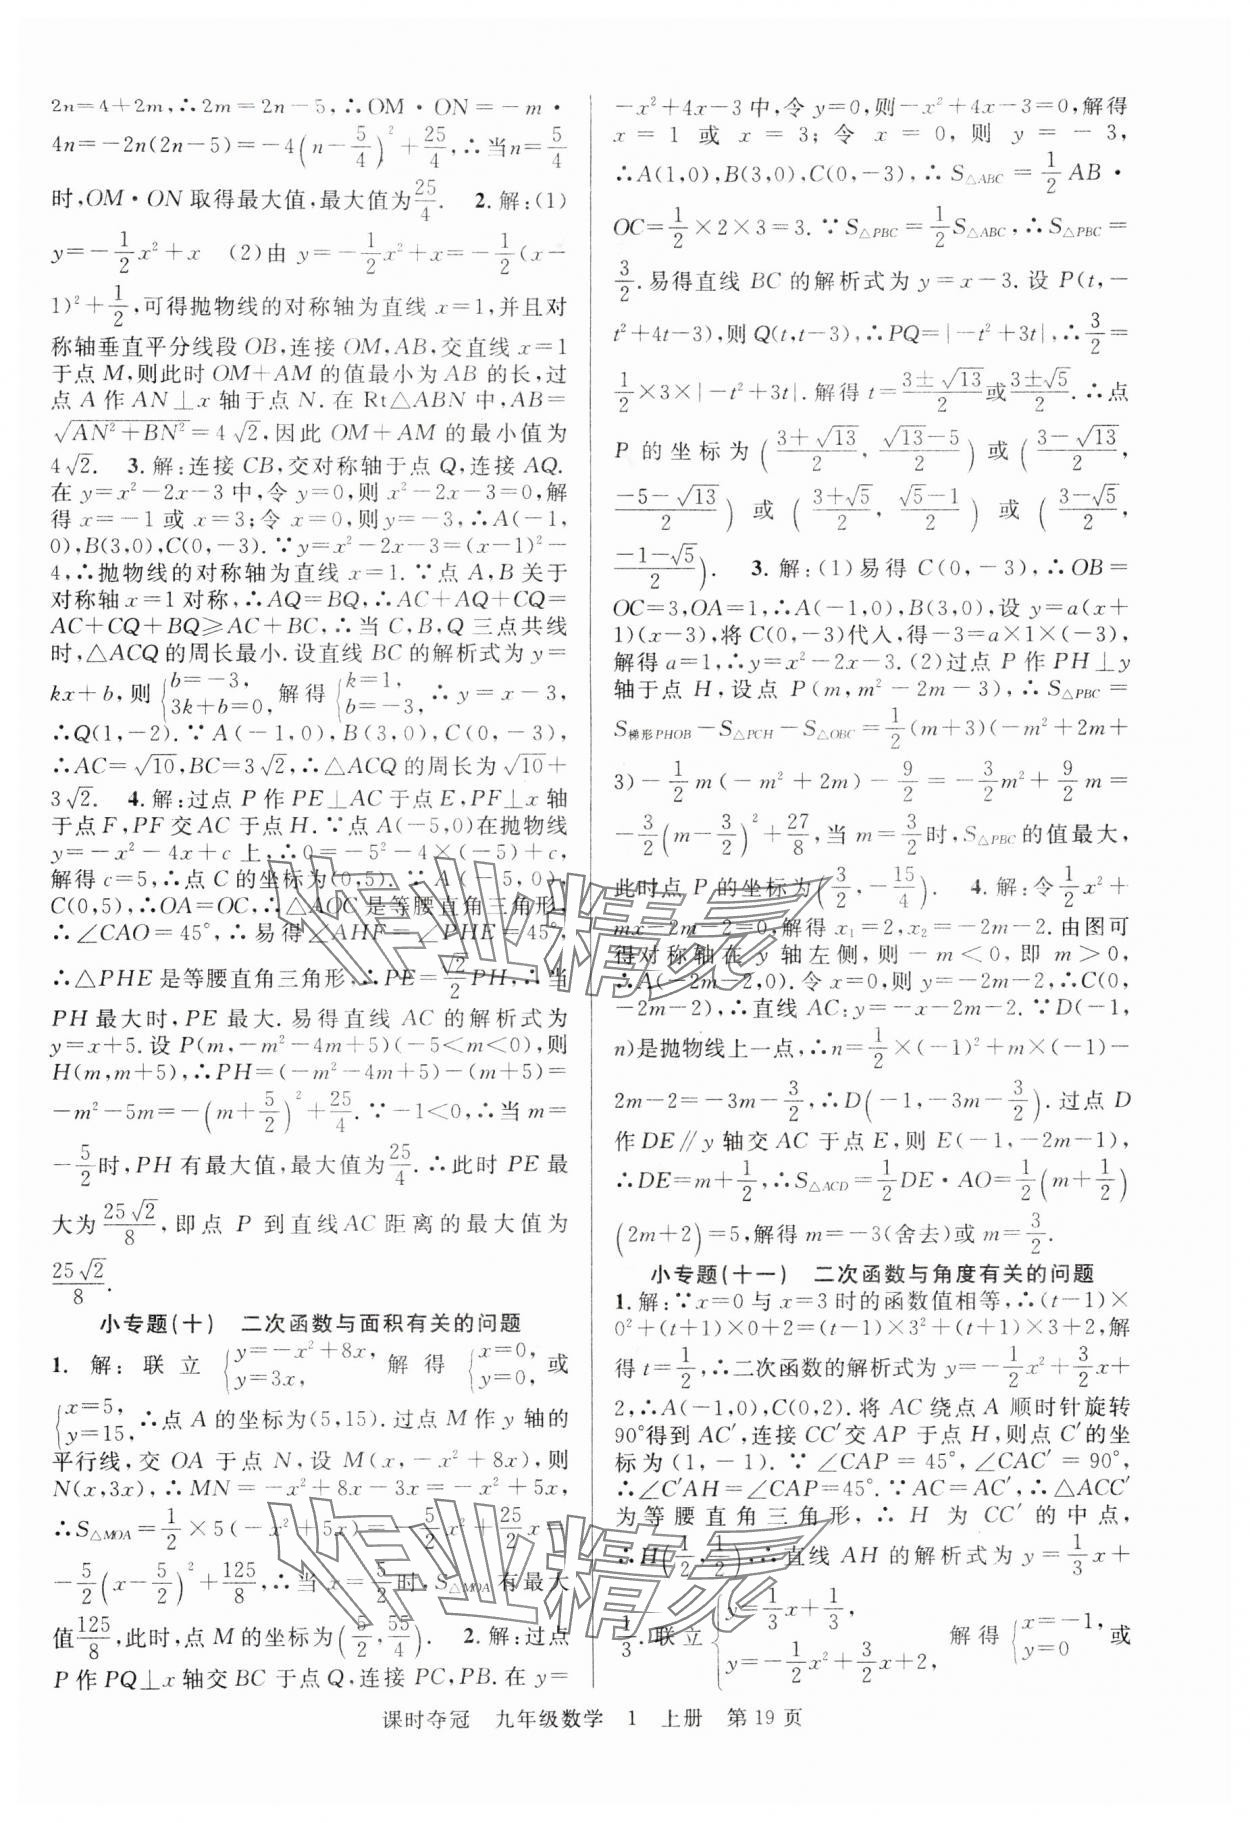 2n=4+2m,∴2m=2n-5,∴OM·ON=-m·
4n=-2n(2n-5)=-4(n-5/4)²+25/4,∴当n=5/4
时,OM·ON取得最大值,最大值为25/4. 2.解:(1)
y=-1/2x²+x (2)由 y=-1/2x²+x=-1/2(x-
1)²+1/2,可得抛物线的对称轴为直线 x=1,并且对
称轴垂直平分线段 OB,连接 OM,AB,交直线 x=1
于点 M,则此时 OM+AM 的值最小为 AB 的长,过
点 A 作 AN⊥x 轴于点 N.在 Rt△ABN 中,AB=
√(AN²+BN²)=4√2,因此 OM+AM 的最小值为
4√2. 3.解:连接 CB,交对称轴于点 Q,连接 AQ.
在 y=x²-2x-3 中,令 y=0,则 x²-2x-3=0,解
得 x=-1 或 x=3;令 x=0,则 y=-3,∴A(-1,
0),B(3,0),C(0,-3).∵y=x²-2x-3=(x-1)²-
4,∴抛物线的对称轴为直线 x=1.∵点 A,B 关于
对称轴 x=1 对称,∴AQ=BQ,∴AC+AQ+CQ=
AC+CQ+BQ≥AC+BC,∴当 C,B,Q 三点共线
时,△ACQ 的周长最小.设直线 BC 的解析式为 y=
kx+b,则{b=-3, 3k+b=0,解得{k=1, b=-3,∴y=x-3,
∴Q(1,-2).∵A(-1,0),B(3,0),C(0,-3),
∴AC=√10,BC=3√2,∴△ACQ 的周长为√10+
3√2. 4.解:过点 P 作 PE⊥AC 于点 E,PF⊥x 轴
于点 F,PF 交 AC 于点 H.∵点 A(-5,0)在抛物线
y=-x²-4x+c 上,∴0=-5²-4×(-5)+c,
解得 c=5,∴点 C 的坐标为(0,5).∵A(-5,0),
C(0,5),∴OA=OC,∴△AOC 是等腰直角三角形,
∴∠CAO=45°,∴易得∠AHF=∠PHE=45°,
∴△PHE 是等腰直角三角形,∴PE=√2/2PH,∴当
PH 最大时,PE 最大.易得直线 AC 的解析式为
y=x+5.设 P(m,-m²-4m+5)(-5<m<0),则
H(m,m+5),∴PH=(-m²-4m+5)-(m+5)=
-m²-5m=-(m+5/2)²+25/4.∵-1<0,∴当 m=
-5/2时,PH 有最大值,最大值为25/4.∴此时 PE 最
大为25√2/8,即点 P 到直线AC 距离的最大值为
25√2/8.
小专题(十) 二次函数与面积有关的问题
1.解:联立{y=-x²+8x, y=3x,解得{x=0, y=0,或
{x=5, y=15,∴点 A 的坐标为(5,15).过点 M 作 y 轴的
平行线,交 OA 于点 N,设 M(x,-x²+8x),则
N(x,3x),∴MN=-x²+8x-3x=-x²+5x,
∴S△MOA=1/2×5(-x²+5x)=-5/2x²+25/2x=
-5/2(x-5/2)²+125/8,∴当 x=5/2时,S△MOA有最大
值125/8,此时,点 M 的坐标为(5/2,55/4). 2.解:过点
P 作 PQ⊥x 轴交 BC 于点 Q,连接 PC,PB.在 y=
-x²+4x-3 中,令 y=0,则-x²+4x-3=0,解得
x=1 或 x=3;令 x=0,则 y=-3,
∴A(1,0),B(3,0),C(0,-3),∴S△ABC=1/2AB·
OC=1/2×2×3=3.∵S△PBC=1/2S△ABC,∴S△PBC=
3/2.易得直线 BC 的解析式为 y=x-3.设 P(t,-
t²+4t-3),则 Q(t,t-3),∴PQ=|-t²+3t|,∴3/2=
1/2×3×|-t²+3t|.解得 t=(3±√13)/2或(3±√5)/2.∴点
P 的坐标为((3+√13)/2,(√13-5)/2)或((3-√13)/2,
(-5-√13)/2)或((3+√5)/2,(√5-1)/2)或((3-√5)/2,
(-1-√5)/2). 3.解:(1)易得 C(0,-3),∴OB=
OC=3,OA=1,∴A(-1,0),B(3,0),设 y=a(x+
1)(x-3),将 C(0,-3)代入,得-3=a×1×(-3),
解得 a=1,∴y=x²-2x-3.(2)过点 P 作 PH⊥y
轴于点 H,设点 P(m,m²-2m-3),∴S△PBC=
S梯形PHOB-S△PCH-S△OBC=1/2(m+3)(-m²+2m+
3)-1/2m(-m²+2m)-9/2=-3/2m²+9/2m=
-3/2(m-3/2)²+27/8,当 m=3/2时,S△PBC的值最大,
此时点 P 的坐标为(3/2,-15/4). 4.解:令1/2x²+
mx-2m-2=0,解得 x₁=2,x₂=-2m-2.由图可
得对称轴在 y 轴左侧,则-m<0,即 m>0,
∴A(-2m-2,0).令 x=0,则 y=-2m-2,∴C(0,
-2m-2),∴直线 AC:y=-x-2m-2.∵D(-1,
n)是抛物线上一点,∴n=1/2×(-1)²+m×(-1)-
2m-2=-3m-3/2,∴D(-1,-3m-3/2).过点 D
作 DE∥y 轴交 AC 于点 E,则 E(-1,-2m-1),
∴DE=m+1/2,∴S△ACD=1/2DE·AO=1/2(m+1/2)
(2m+2)=5,解得 m=-3(舍去)或 m=3/2.
小专题(十一) 二次函数与角度有关的问题
1.解:∵x=0 与 x=3 时的函数值相等,∴(t-1)×
0²+(t+1)×0+2=(t-1)×3²+(t+1)×3+2,解
得 t=1/2,∴二次函数的解析式为 y=-1/2x²+3/2x+
2,∴A(-1,0),C(0,2).将 AC 绕点 A 顺时针旋转
90°得到 AC′,连接 CC′交 AP 于点 H,则点 C′的坐
标为(1,-1).∵∠CAP=45°,∠CAC′=90°,
∴∠C′AH=∠CAP=45°.∵AC=AC′,∴△ACC′
为等腰直角三角形,∴H 为 CC′的中点,
∴H(1/2,1/2),∴直线 AH 的解析式为 y=1/3x+
1/3.联立{y=1/3x+1/3, y=-1/2x²+3/2x+2,解得{x=-1, y=0或
课时夺冠 九年级数学 1 上册 第19页
作业精灵
作业精灵